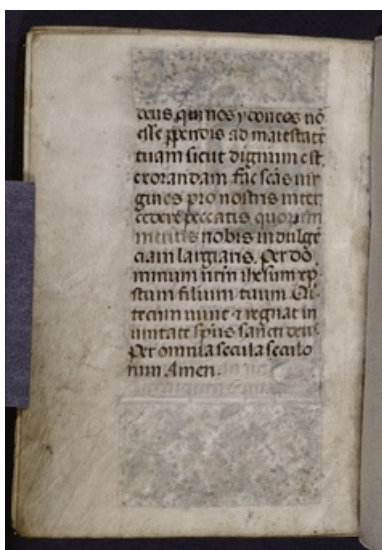 deus qui nos ydoneos nō
esse ꝑpendis ad maiestatē
tuam sicut dignum est
exorandam fac scās vir
gines pro nostris inter
cedere peccatis quorum
meritis nobis indulgē
ciam largiaris. Per dō
minum nr̄m ihesum xp̄
stum filium tuum. Qui
tecum viuit ⁊ regnat in
unitate sp̄us sancti deus
Per omnia secula seculo
rum Amen.